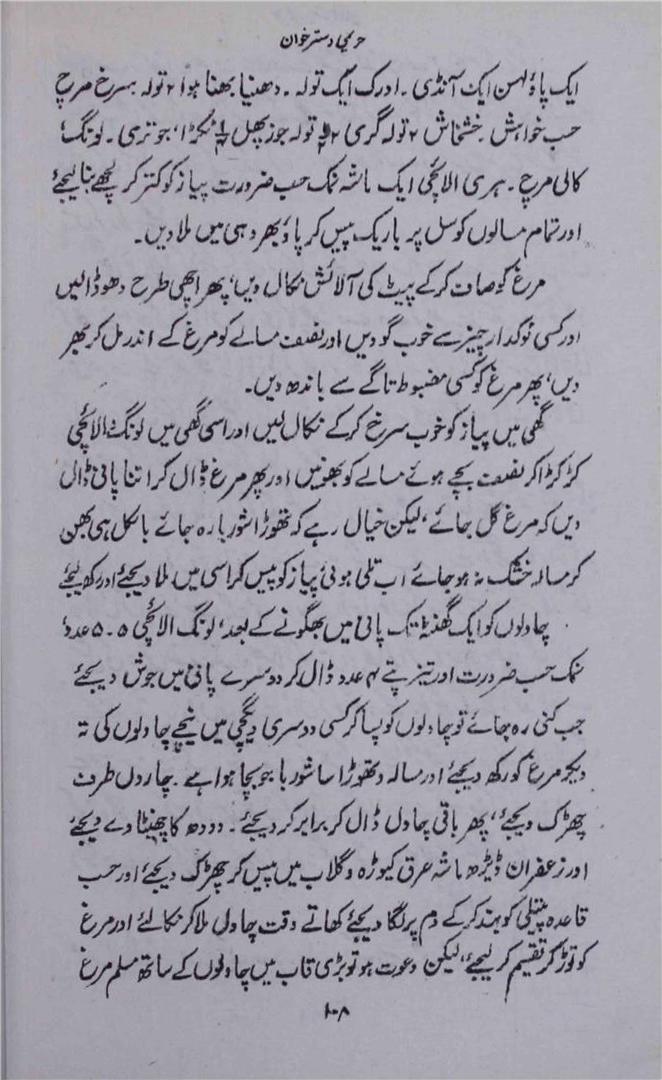 حریمی دسترخوان
ایک پاؤ لہسن ایک آنڈی ۔ ادرک ایک تولہ ۔ دھنیا بھنا ہوا ۲ تولہ ہسرخ مرچ
حسب خواہش ۔ خشخاش ۲ تولہ گری ۲ تولہ جوز پھل ٹکڑا، جوتری ۔ لونگ،
کالی مرچ ۔ ہری الائچی ایک ماشہ نمک حسب ضرورت پیاز کو کتر کر لچھے بنا لیجئے
اور تمام مسالوں کو سل پر باریک پیس کر پاؤ بھر دہی میں ملا دیں ۔
مرغ کو صاف کرکے پیٹ کی آلائش نکال دیں، پھر اچھی طرح دھو ڈالیں
اور کسی نوکدار چیز سے خوب گود یں اور نصف مسالے کو مرغ کے اندر مل کر بھر
دیں، پھر مرغ کو کسی مضبوط تاگے سے باندھ دیں ۔
گھی میں پیاز کو خوب سرخ کرکے نکال لیں اور اسی گھی میں لونگ، الائچی
کڑکڑا کر نصف بچے ہوئے مسالے کو بھونیں اور پھر مرغ ڈال کر اتنا پانی ڈال
دیں کہ مرغ گل جائے، لیکن خیال رہے کہ تھوڑا شوربا رہ جائے بالکل ہی بھن
کر مسالہ خشک نہ ہو جائے اب تلی ہوئی پیاز کو پیس کر اسی میں ملا دیجئے اور رکھ لیجئے
چاولوں کو ایک گھنٹہ تک پانی میں بھگونے کے بعد، لونگ الائچی ۵ ۔ ۵ عدد
نمک حسب ضرورت اور تیز پتے ۴ عدد ڈال کر دوسرے پانی میں جوش دیجئے
جب کنی رہ جائے تو چاولوں کو پسا کر کسی دوسری دیگچی میں نیچے چاولوں کی تہ
دیکر مرغ کو رکھ دیجئے اور مسالہ و تھوڑا سا شوربا جو بچا ہوا ہے ۔ چاروں طرف
چھڑک دیجئے، پھر باقی چاول ڈال کر برابر کر دیجئے ۔ دودھ کا چھینٹا دے دیجئے
اور زعفران ڈیڑھ ماشہ عرق کیوڑہ و گلاب میں پیس کر چھڑک دیجئے اور حسب
قاعدہ پتیلی کو بند کرکے دم پر لگا دیجئے کھاتے وقت چاول ملا کر نکالئے اور مرغ
کو توڑ کر تقسیم کر لیجئے، لیکن دعوت ہو تو بڑی قاب میں چاولوں کے ساتھ مسلم مرغ
۱۰۸